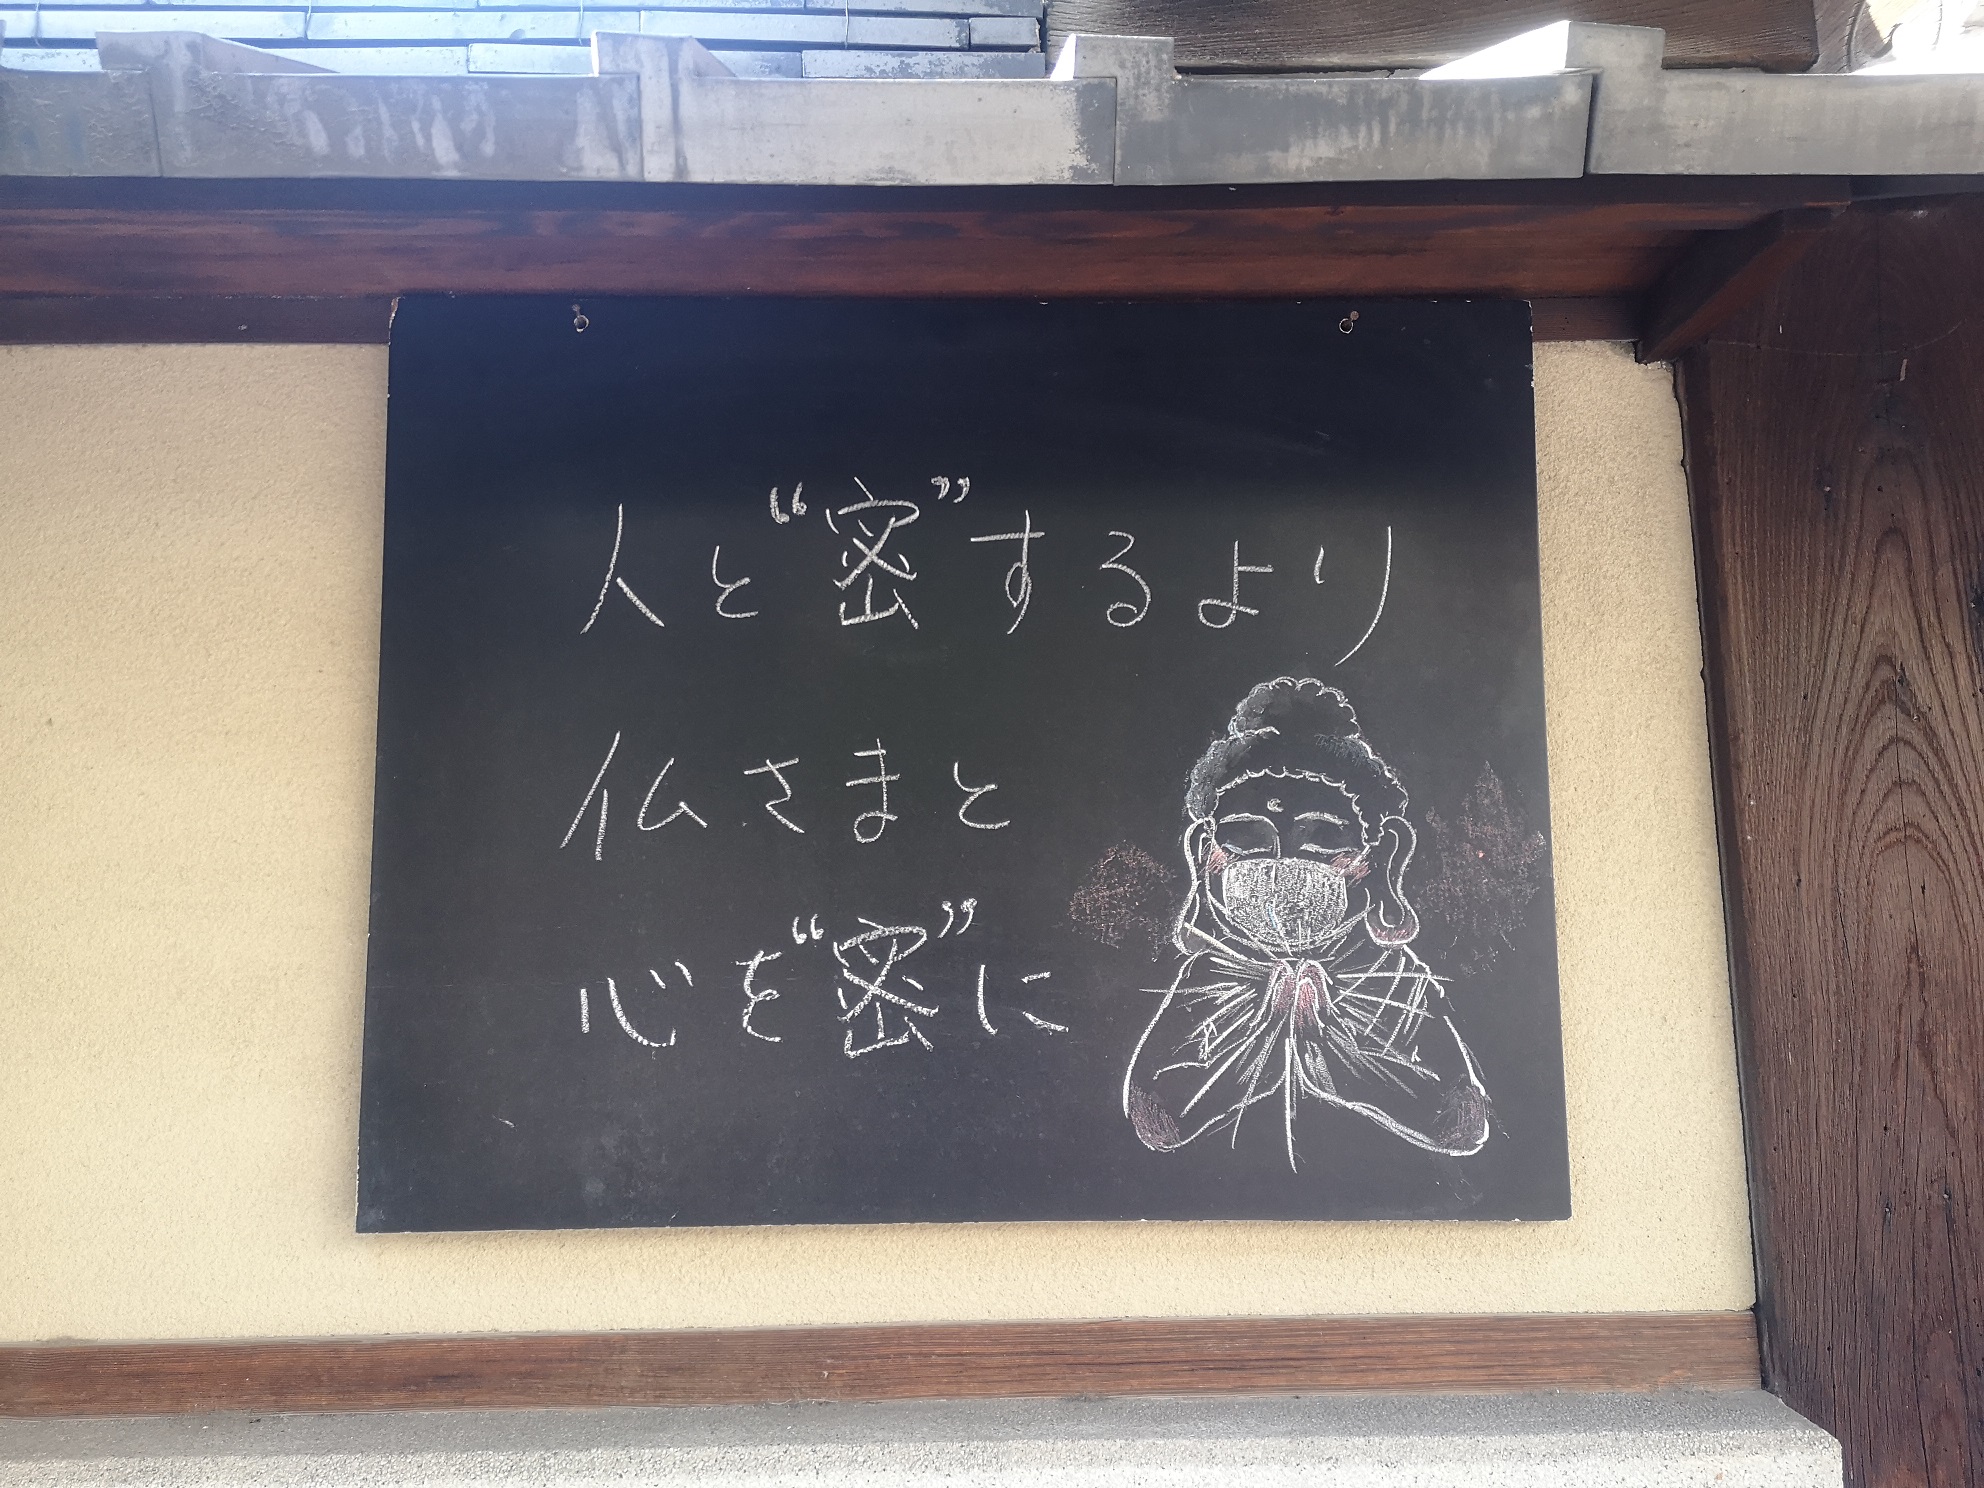 人と“密”するより
仏さまと
心を“密”に